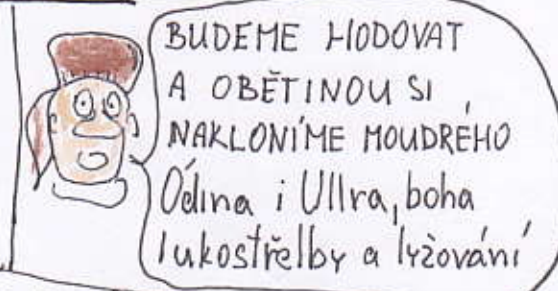 BUDEME HODOVAT
A OBĚTINOU SI
NAKLONÍME MOUDRÉHO
Ódina i Ullra, boha
lukostřelby a lyžování